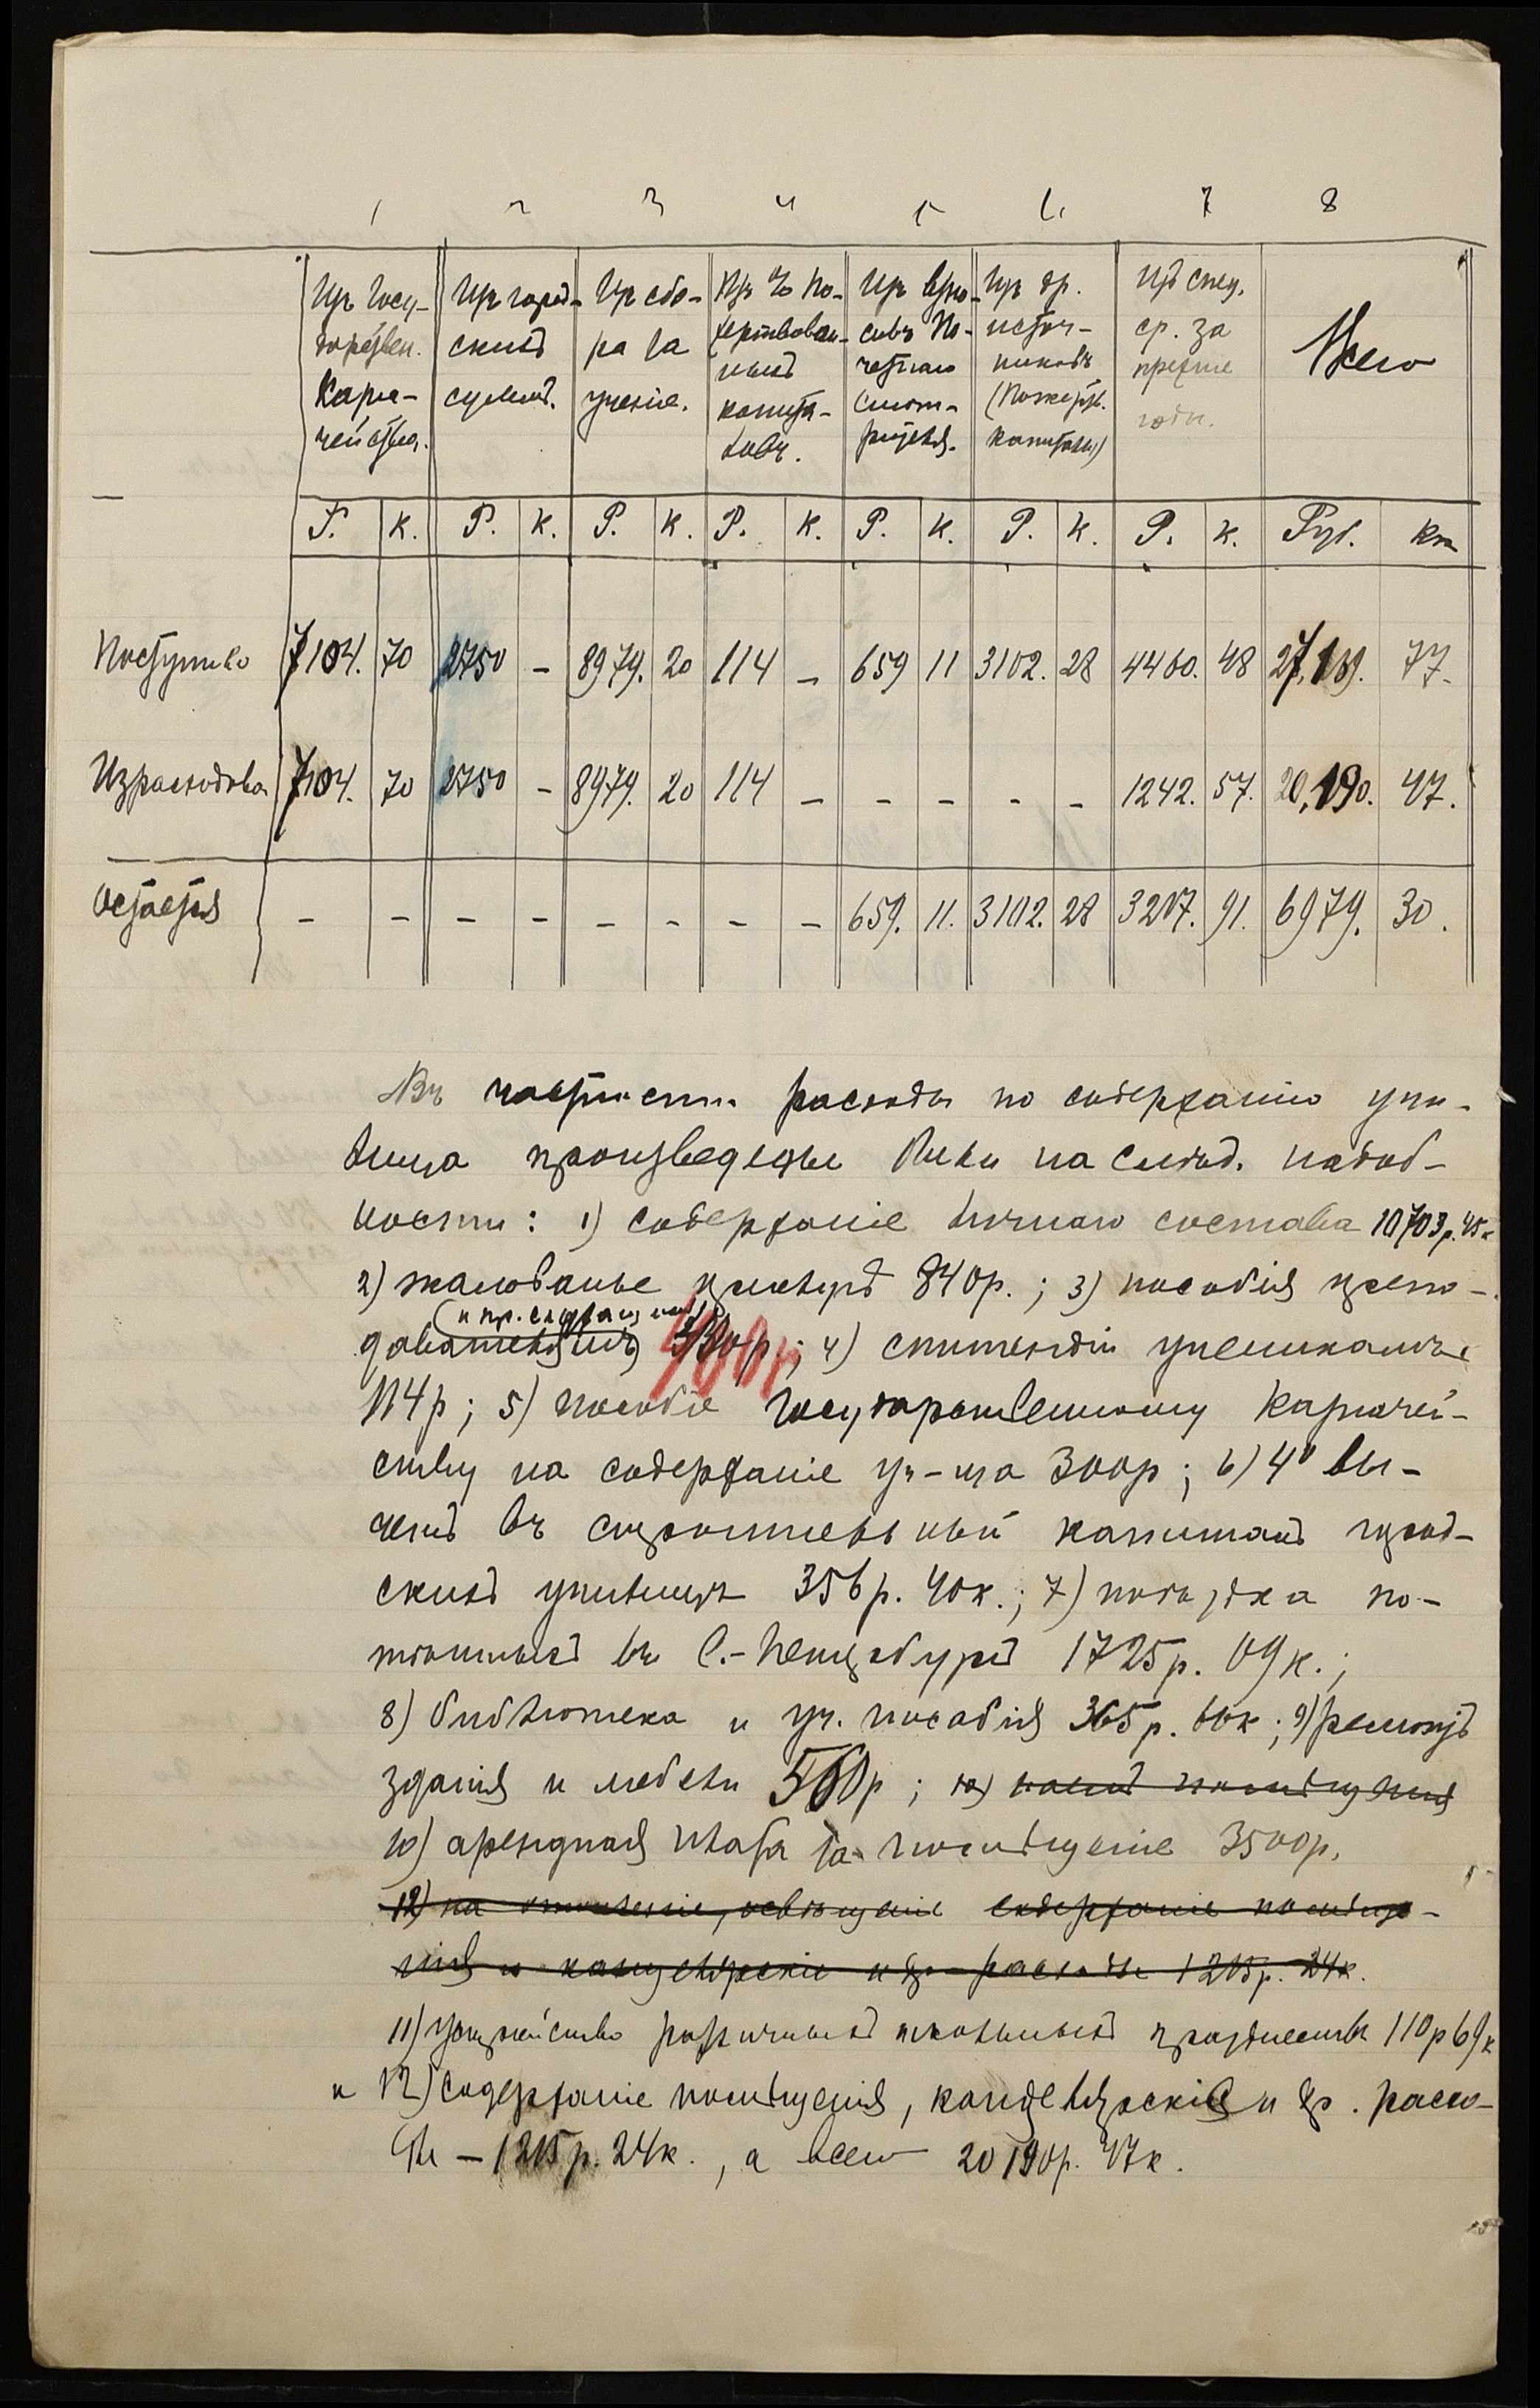 1 2 3 4 5 6. 7 8
Изъ Госу- Изъ город- Изъ сбо- Изъ % по- Изъ взно- Изъ др. Изъ спец. Всего
дарствен. скихъ ра за жертвован- совъ По- источ- ср. за
Казна- суммъ. ученіе. ныхъ четнаго никовъ прежніе
чейства. капита- Смот- (Пожертв. годы.
ловъ. рителя. капиталы)
Р. К. Р. К. Р. К. Р. К. Р. К. Р. К. Р. К. Руб. Коп
Поступило 7104. 70 2750 - 8979. 20 114 - 659 11 3102. 28 4460. 48 27,169. 77.
Израсходова 7104. 70 2750 - 8979. 20 114 - - - - - 1242. 57. 20,190. 47.
Остается - - - - - - - - 659. 11. 3102. 28 3217. 91. 6979. 30.
Въ частности расходы по содержанію учи-
лища произведены были на слѣд. надоб-
ности: 1) содержаніе личнаго состава 10703 р. 45 к
2) жалованье прислугѣ 840 р.; 3) пособія препо-
(и пр. служащимъ)
давателямъ 400 р.; 4) стипендіи ученикамъ
114 р; 5) пособіе Государственному Казначей-
ству на содержаніе уч-ща 300 р; 6) 4% вы-
четъ въ строительный капиталъ город-
скихъ училищъ 356 р. 40 к.; 7) поѣздка по-
тѣшныхъ въ С.-Петербургъ 1725 р. 09 к.;
8) библіотека и уч. пособія 365 р. 60 к; 9) ремонтъ
зданія и мебели 560 р; 10) наемъ помѣщенія
10) арендная плата за помѣщеніе 3500 р.
12) на отопленіе, освѣщеніе содержаніе помѣще-
нія и канцелярскіе и др. расходы 1215 р. 24 к.
11) устройство различныхъ школьныхъ празднествъ 110 р 69 к
и 12) содержаніе помѣщенія, канцелярскія и др. расхо-
ды - 1215 р. 24 к., а всего 20190 р. 47 к.